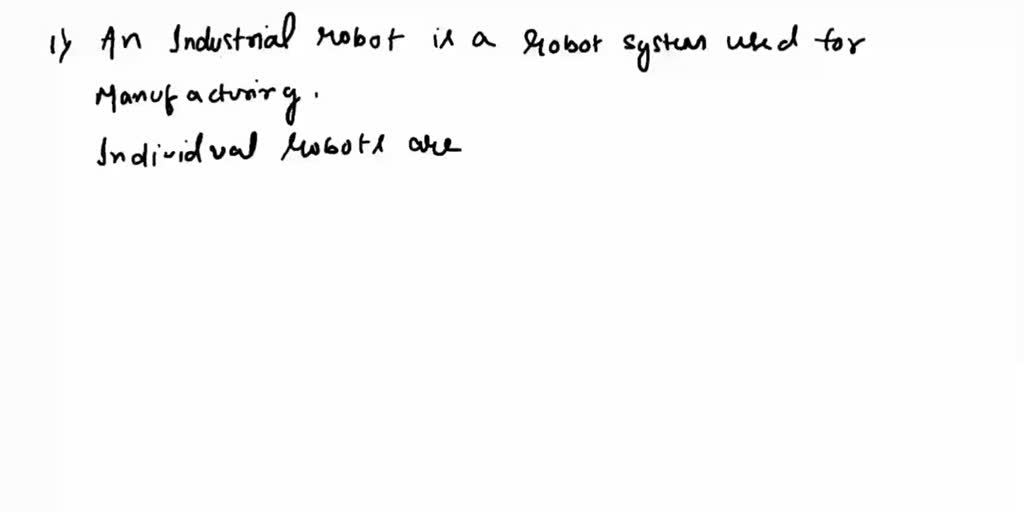 1) An Industrial robot is a robot system used for
Manufacturing.
Individual robots are